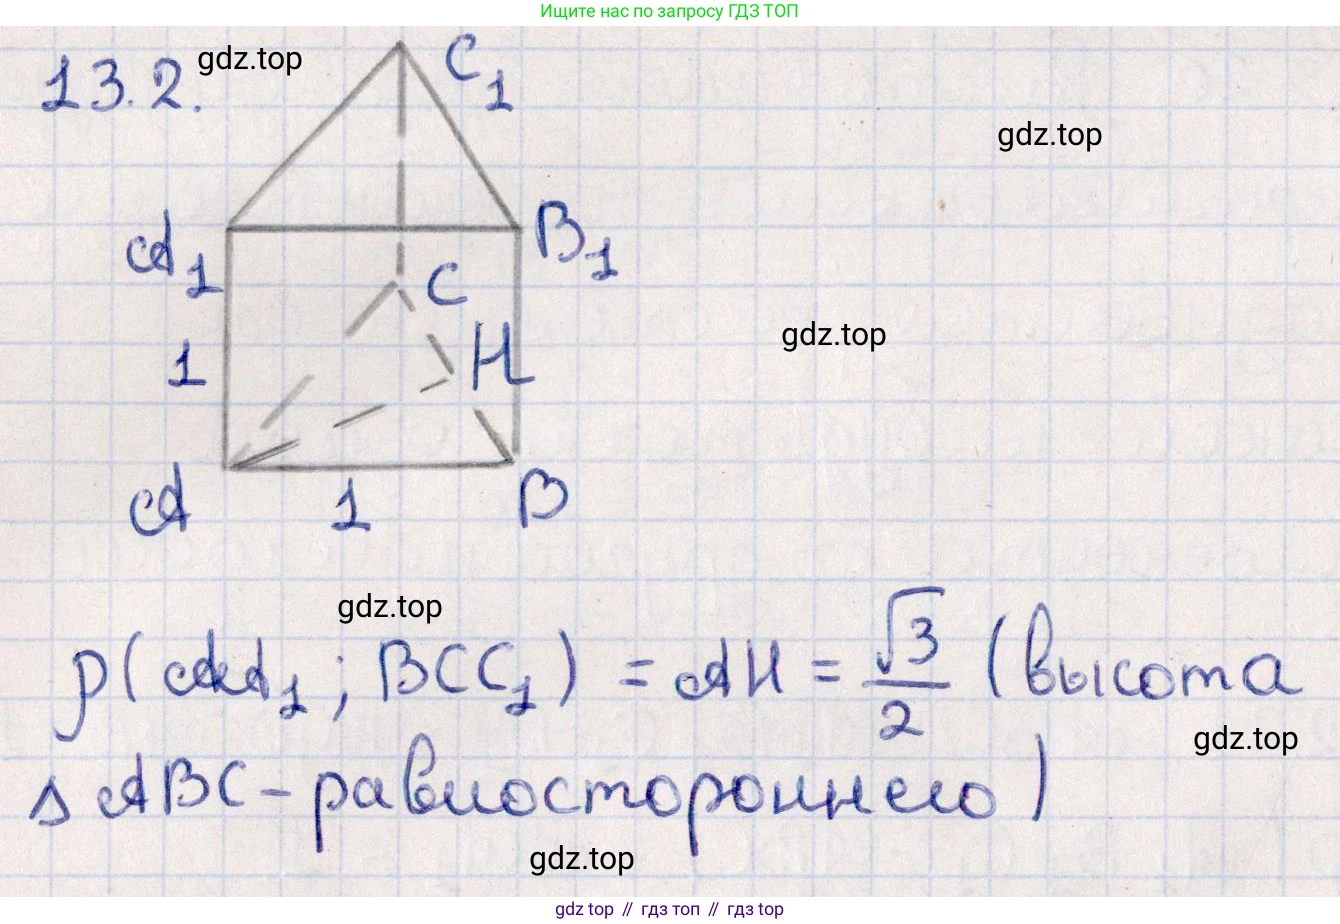 Ищите нас по запросу ГДЗ ТОП
13.2.
gdz.top
C₁
gdz.top
A₁
B₁
C
1
H
gdz.top
A
1
B
gdz.top
ρ(AA₁; BCC₁) = AH = √3/2 (высота
gdz.top
Δ ABC - равностороннего)
gdz.top
gdz top // гдз топ // гдз top